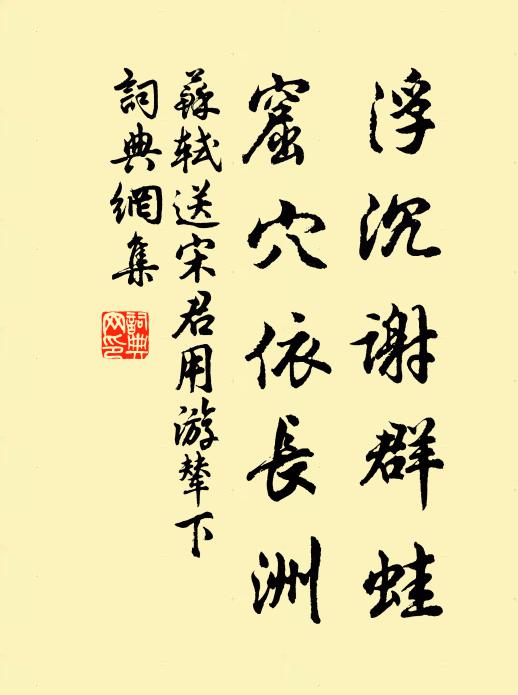 浮沉謝群蛙
窟穴依長洲
蘇軾送宋君用游輦下
詞典網集
詞典網印